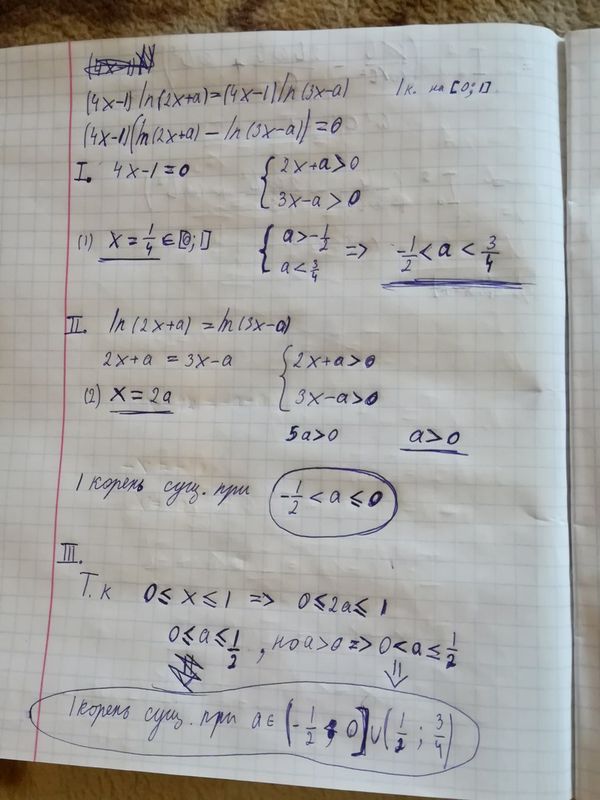 (4x-1)ln(2x+a)=(4x-1)ln(3x-a) 1к. на [0;1]
(4x-1)(ln(2x+a) - ln(3x-a))=0
I. 4x-1=0 { 2x+a>0
3x-a>0
(1) x=1/4 ∈[0;1] { a>-1/2 => -1/2<a<3/4
a<3/4
II. ln(2x+a)=ln(3x-a)
2x+a=3x-a { 2x+a>0
(2) x=2a 3x-a>0
5a>0 a>0
1 корень сущ. при -1/2<a≤0
III.
Т.к 0≤x≤1 => 0≤2a≤1
0≤a≤1/2, но a>0 => 0<a≤1/2
⇓
1 корень сущ. при a∈(-1/2; 0]∪(1/2; 3/4)